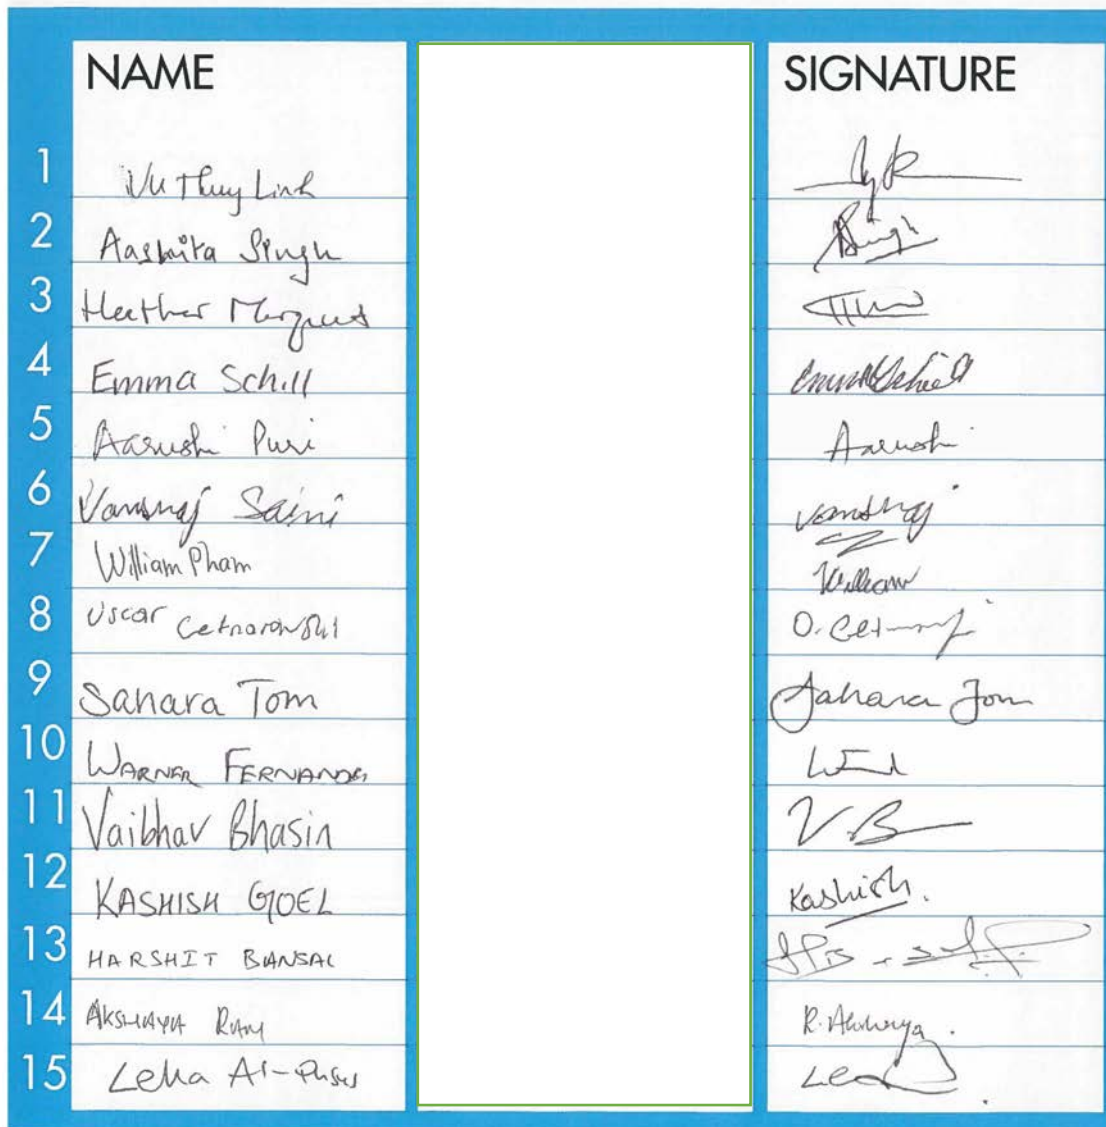 NAME SIGNATURE
1 Vu Thuy Linh
2 Aashita Singh Singh
3 Heather
4 Emma Schill Emma Schill
5 Aarushi Puri Aarushi
6 Vanshaj Saini Vanshaj
7 William Pham William
8 Oscar Cetnarowski O.
9 Sahara Tom Sahara Tom
10 WARNER FERNANDES
11 Vaibhav Bhasin V.B
12 KASHISH GOEL Kashish.
13 HARSHIT BANSAL
14 AKSHAYA RAM R. Akshaya.
15